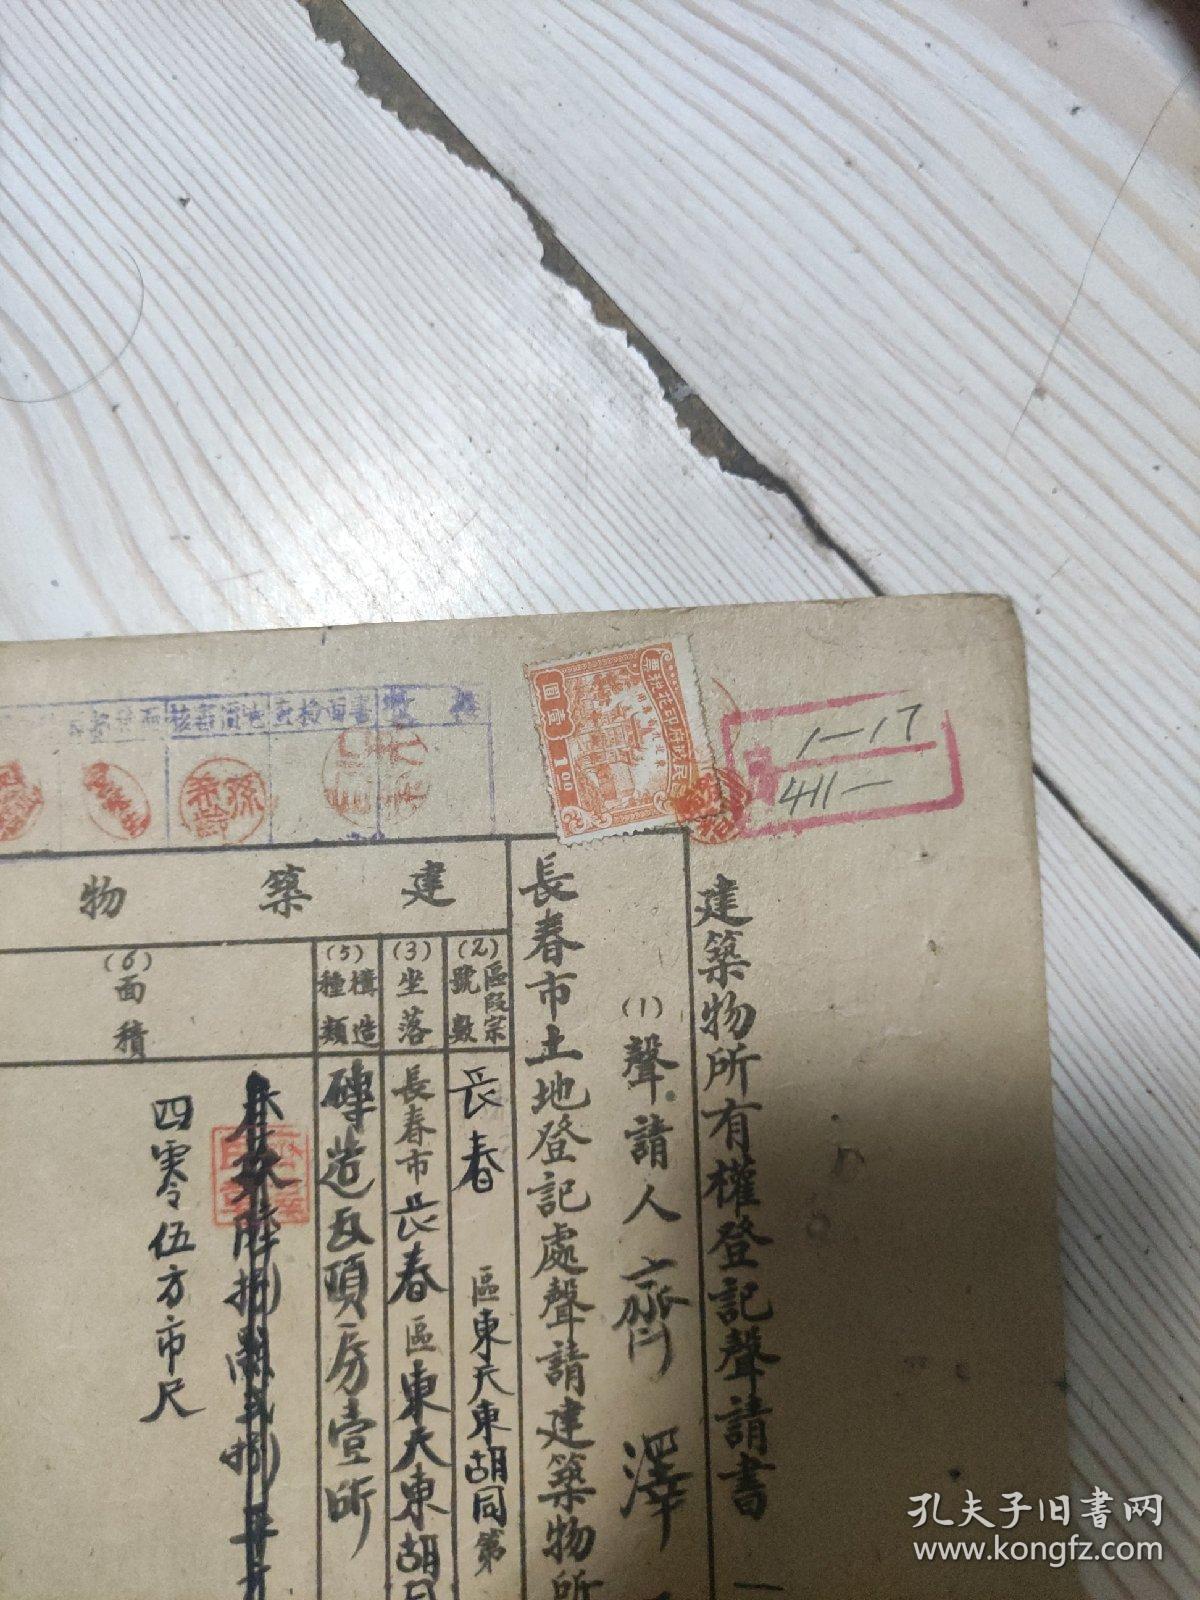 1-17
411-
建築物所有權登記聲請書
(1)聲請人齊澤
長春市土地登記處聲請建築物所
票花印府政民
圓壹
1.00
孫希齡
建築物
(2)區段宗號數
長春區東天東胡同第
(3)坐落
長春市長春區東天東胡同
(5)構造種類
磚造瓦頂房壹所
(6)面積
四零伍方市尺
孔夫子旧书网
www.kongfz.com